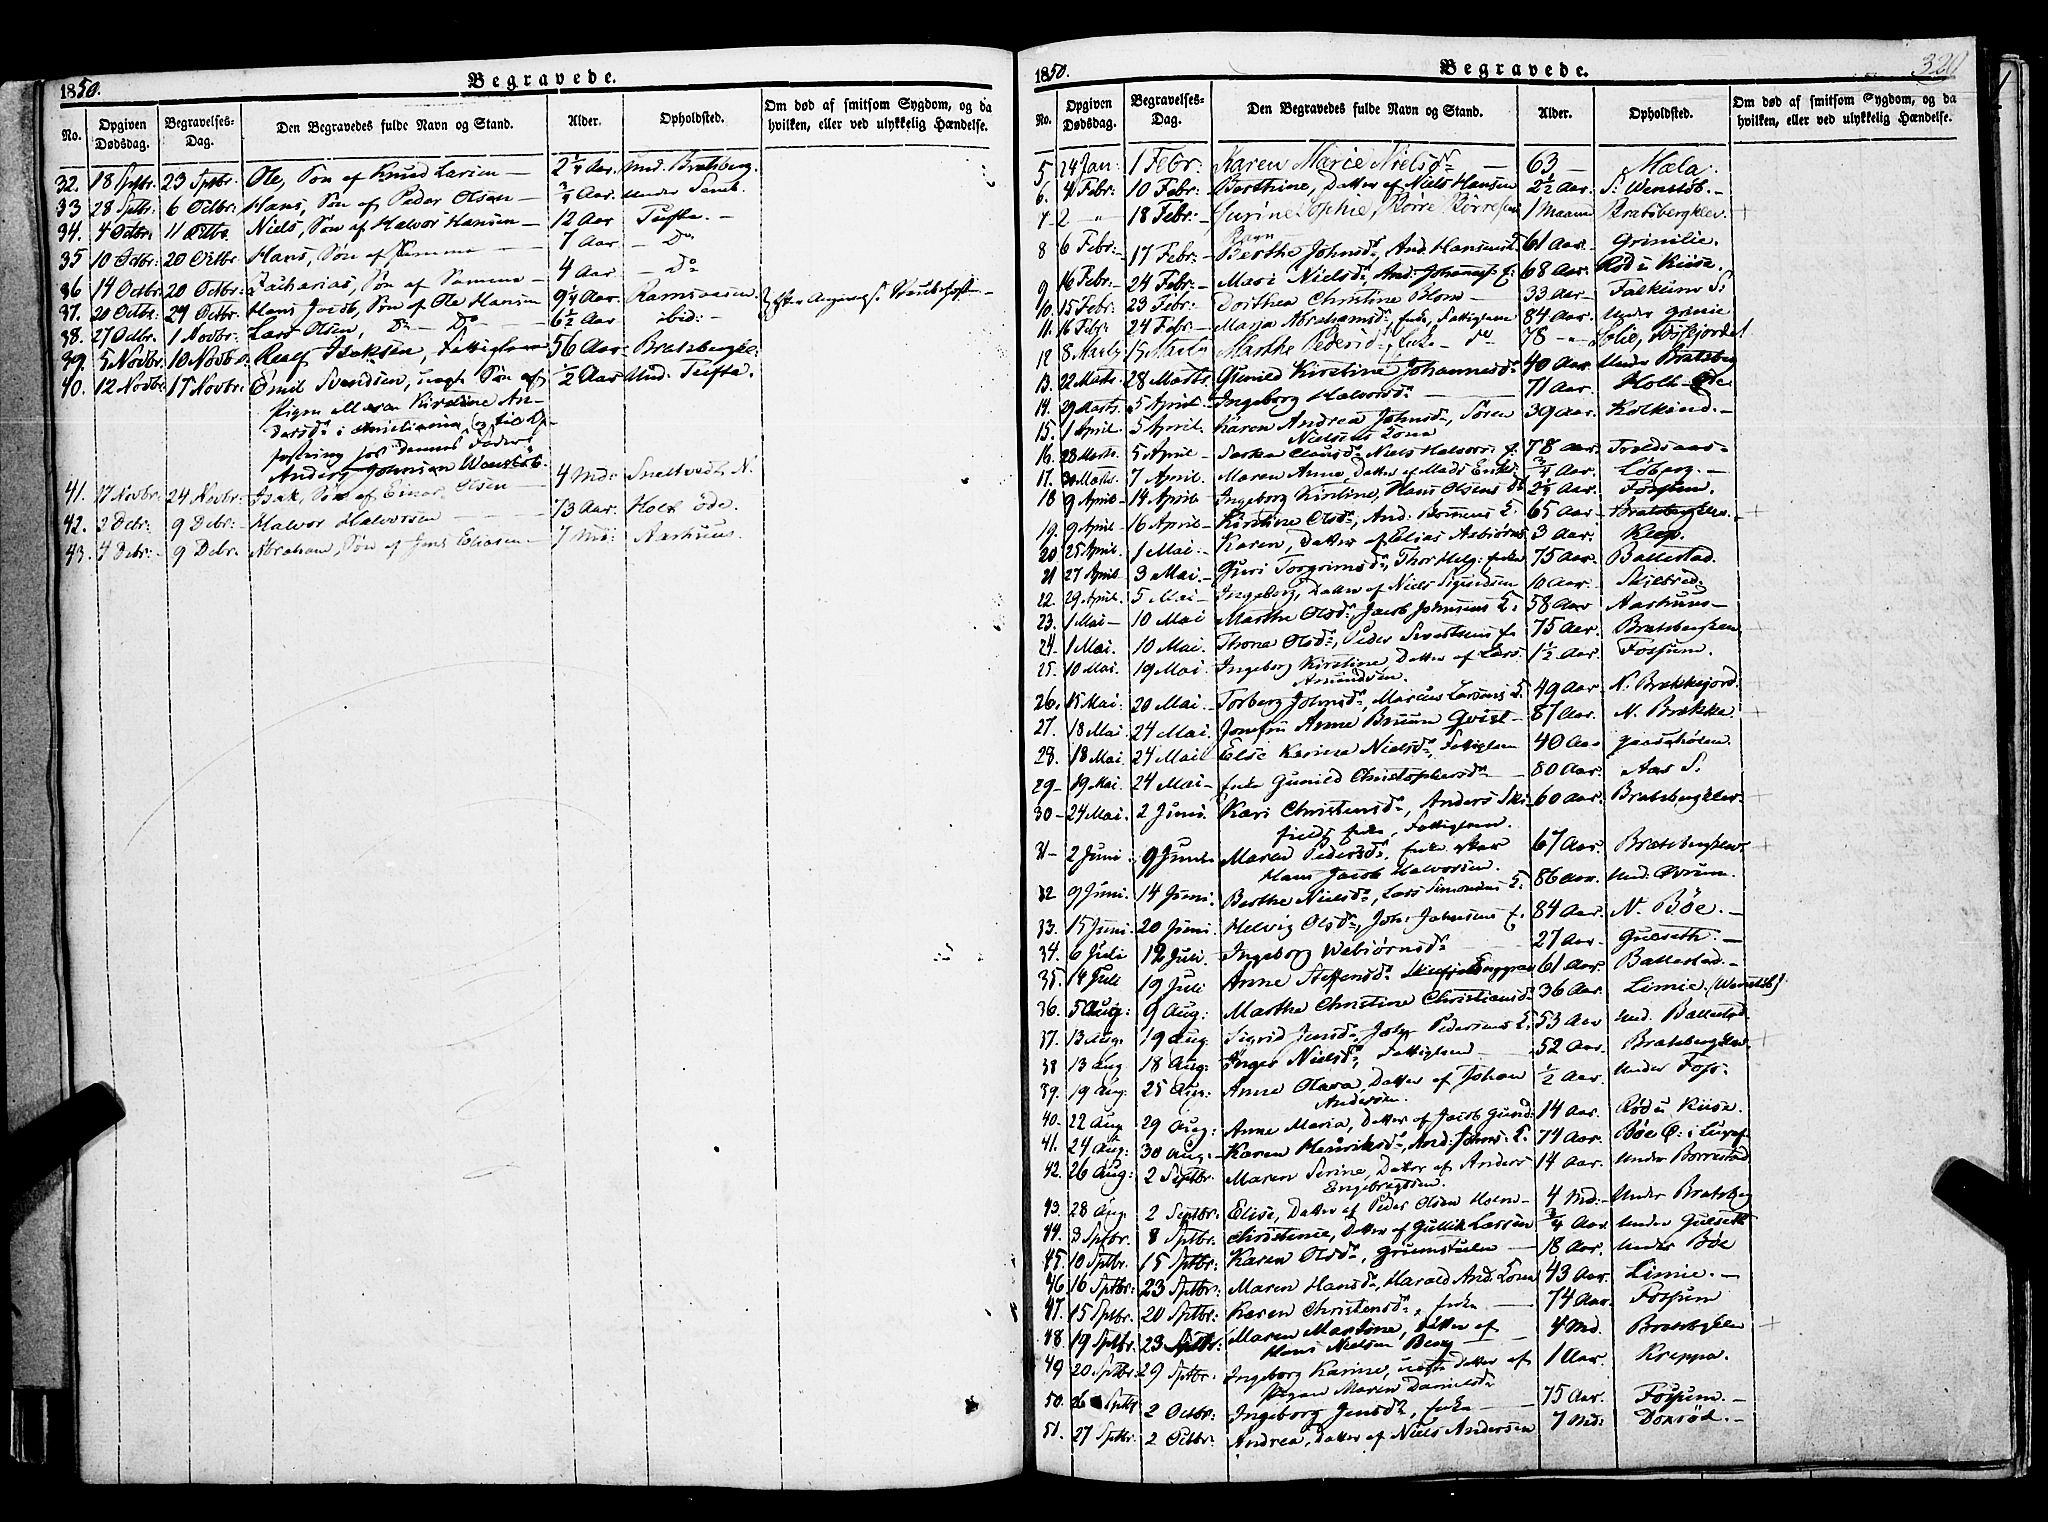 1850.
Begravede.
No.
Opgiven Dødsdag.
Begravelses-Dag.
Den Begravedes fulde Navn og Stand.
Alder.
Opholdsted.
Om død af smitsom Sygdom, og da hvilken, eller ved ulykkelig Hændelse.
32. 18 Sptbr. 23 Sptbr. Ole, Søn af Knud Larsen — 2 1/4 Aar. Und. Bratsberg.
33 28 Sptbr: 6 Octbr: Hans, Søn af Peder Olsen — 3/4 Aar. under
34. 4 Octbr. 11 Octbr. Niels, Søn af Halvor Hansen — 12 Aar Tufte. —
35 10 Octbr: 20 Octbr Hans, Søn af Samme — 7 Aar — Do
36 14 Octbr. 20 Octbr: Zacharias, Søn af Samme — 4 Aar — Do
37. 20 Octbr: 27 Octbr: Hans Jacob, Søn af Ole Hansen 9 1/4 Aar. Ramsaasen
38. 27 Octbr. 1 Novbr: Lars Olsen, Do — Do — 6 1/2 Aar ibid: —
39. 5 Novbr. 10 Novbr. Isaksen, Fattiglem 56 Aar Bratsbergkl:
40. 12 Novbr. 17 Novbr: Emil Svendsen, uægte Søn af 1/2 Aar Und. Tufte.
Pigen Kirstine An-
dersd: i Christiania, og til Op-
fostring hos Dennes Fader
Anders Johnsen Wenstøb.
41. 17 Novbr. 24 Novbr: Isak, Søn af Einar Olsen — 4 Md: Sneltvedt N.
42. 2 Debr: 9 Debr: Halvor Halvorsen — 73 Aar. Holt øde.
43. 4 Debr: 9 Debr. Abraham, Søn af Jens Eliasen 7 Md: Aarhuus.
1850.
Begravede.
320
No.
Opgiven Dødsdag.
Begravelses-Dag.
Den Begravedes fulde Navn og Stand.
Alder.
Opholdsted.
Om død af smitsom Sygdom, og da hvilken, eller ved ulykkelig Hændelse.
5 24 Jan: 1 Febr: Karen Marie Nielsd: — 63 — Mæla.
6. 4 Febr: 10 Febr: Berthine, Datter af Niels Hansen 2 1/2 Aar. S: Wenstøb. —
7 2 " 18 Febr: — Sophie, Børre Børresens 1 Maaned Bratsbergklev +
Barn
8 6 Febr: 17 Febr: — Berthe Johnsd:, And. Hansens 61 Aar. Grinilie.
9 16 Febr: 24 Febr: — Mari Nielsd:, And: f: 68 Aar. Rød u Kiise.
10. 15 Febr: 23 Febr: Dorthea Christine Blom — 33 Aar — Falkum S:
11. 16 Febr: 24 Febr: — Maria Abrahamsd:, Enke, Fattiglem 84 Aar: under Grinie
12 8 Marts 15 Marts Marthe Pedersd:, Enke — do 78 — Solie,
13. 22 Marts 28 Marts Gunild Kirstine Johannesd: 40 Aar Und: Bratsberg
14. 29 Marts 5 April — Ingeborg Halvorsd: — 71 Aar. Holt Øde
15. 1 April. 5 April. Karen Andrea Johnsd:, Søren 39 Aar. Kolkind. —
Nielsens Kone
16. 28 Marts. 5 April — Clausd: Niels Halvors: f. 78 Aar. Troldsaas —
17. 30 Marts 7 April — Maren Anne, Datter af Mads 3/4 Aar. Løberg. —
18 9 April 14 April Ingeborg Kirstine, Hans Olsens D: 2 1/4 Aar. Fossum.
19. 9 April 16 April — Kirstine Olsd:, And: K: 65 Aar — Bratsbergklev. +
20 25 April. 1 Mai — Karen, Datter af Elias Asbiørns: 3 Aar. Klep.
21 27 April 3 Mai — Guri Torgrimsd:, Thor Helg: Enke 75 Aar: Ballestad.
22. 29 April. 5 Mai — Ingeborg, Datter af Niels Sigurdsen 10 Aar.
23. 1 Mai — 10 Mai Marthe Olsd:, Jacob Johnsens K: 58 Aar Aarhuus —
24. 1 Mai. 10 Mai. Thone Olsd:, Peder Sivertsens 75 Aar. Bratsbergklev
25. 10 Mai. 19 Mai. Ingeborg Kirstine, Datter af Lars 1 1/2 Aar. Fossum.
Amundsen.
26. 15 Mai. 20 Mai. — Torberg Johnsd:, Marcus Larsens K. 49 Aar. N. Brækkejord.
27. 18 Mai 24 Mai. Jomfru Anne Bruun Qvist — 87 Aar. N. Brække. +
28. 18 Mai. 24 Mai Else Karine Nielsd:, Fattiglem 40 Aar
29 — 19 Mai. 24 Mai — Enke Gunild Christophersd: — 80 Aar. Aas S.
30 — 24 Mai. 2 Juni. Kari Christensd:, Anders Ski- 60 Aar. Bratsbergklev. +
fields Enke, Fattiglem.
31 — 2 Juni 9 Juni. Maren Pedersd:, Enke efter 67 Aar. Bratsbergklev. +
Hans Jacob Halvorsen.
32 9 Juni. 14 Juni. Berthe Nielsd:, Lars Simonsens K. 86 Aar. Und: Ovrum.
33. 15 Juni. 20 Juni. Helvig Olsd:, Joh: Johnsens f. 84 Aar. N. Bøe. —
34. 6 Juli 12 Juli. Ingeborg Webiørnsd: 27 Aar — Gulseth. —
35. 14 Juli 19 Juli Anne Steffensd: 61 Aar. Ballestad. —
36. 5 Aug: 9 Aug: Marthe Christine Christiansd: 36 Aar. Limie. (Wenstøb)
37. 13 Aug. 19 Aug. Sigrid Jensd:, Pedersens K. 53 Aar Und. Ballestad.
38 13 Aug 18 Aug: Inger Nielsd:, Fattiglem — 52 Aar. Bratsbergklev. +
39. 19 Aug. 25 Aug: Anne Olava, Datter af Johan 1/2 Aar. Under Foss.
Andersen.
40. 22 Aug 29 Aug: Anne Maria, Datter af Jacob Gund: 14 Aar. Rød u Kiise.
41. 24 Aug: 30 Aug. Karen Henriksd:, And: Johns: K. 74 Aar. Bøe
42. 26 Aug: 2 Septbr. Maren Serine, Datter af Anders 14 Aar. Under Borrestad
Engebregtsen.
43. 28 Aug. 2 Septbr: Elise, Datter af Peder Olsen Holm — 4 Md: Under Bratsberg
44. 3 Sptbr. 8 Sptbr: Christine, Datter af Gullik Larsen 3/4 Aar. Under Gulseth
45. 10 Sptbr. 15 Sptbr: Karen Olsd:, — 18 Aar. Under Bøe
46 16 Sptbr: 23 Sptbr: Maren Hansd:, Harald And: Kone 43 Aar. Limie. —
47. 15 Sptbr: 20 Sptbr: Karen Christensd:, Enke — 74 Aar. Fossum
48. 19 Sptbr: 23 Sptbr: Maren Martine, Datter af 4 Md. Bratsbgklev +
Hans Nielsen Berg —
49 20 Sptbr: 29 Sptbr: Ingeborg Karine, uægte Datter af 1 Aar. Kreppa.
Pigen Maren Danielsd:
50. 26 Sptbr 2 Octbr: Ingeborg Jensd:, Enke — 75 Aar. Fossum. —
51. 27 Sptbr. 2 Octbr: Andrea, Datter af Niels Andersen 7 Md: